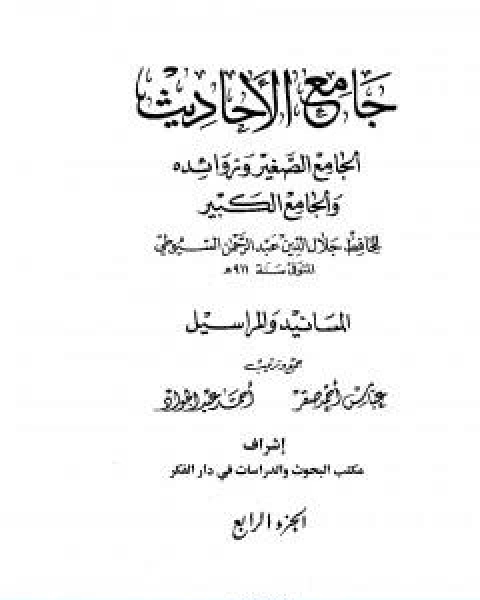 جَامِعُ الأَحَادِيث
الجَامِعُ الصَّغِيرُ وَزَوَائِدُه
وَالجَامِعُ الكَبِير
للحَافِظ جَلَال الدِّين عَبد الرَّحْمٰن السُّيُوطِي
المتَوَفّى سَنَة ٩١١ هـ
المسَانِيد وَالمرَاسِيل
جمع وترتيب
عباس أحمد صقر أحمد عبد الجواد
إشراف
مكتب البحوث والدراسات في دار الفكر
الجزء الرابع